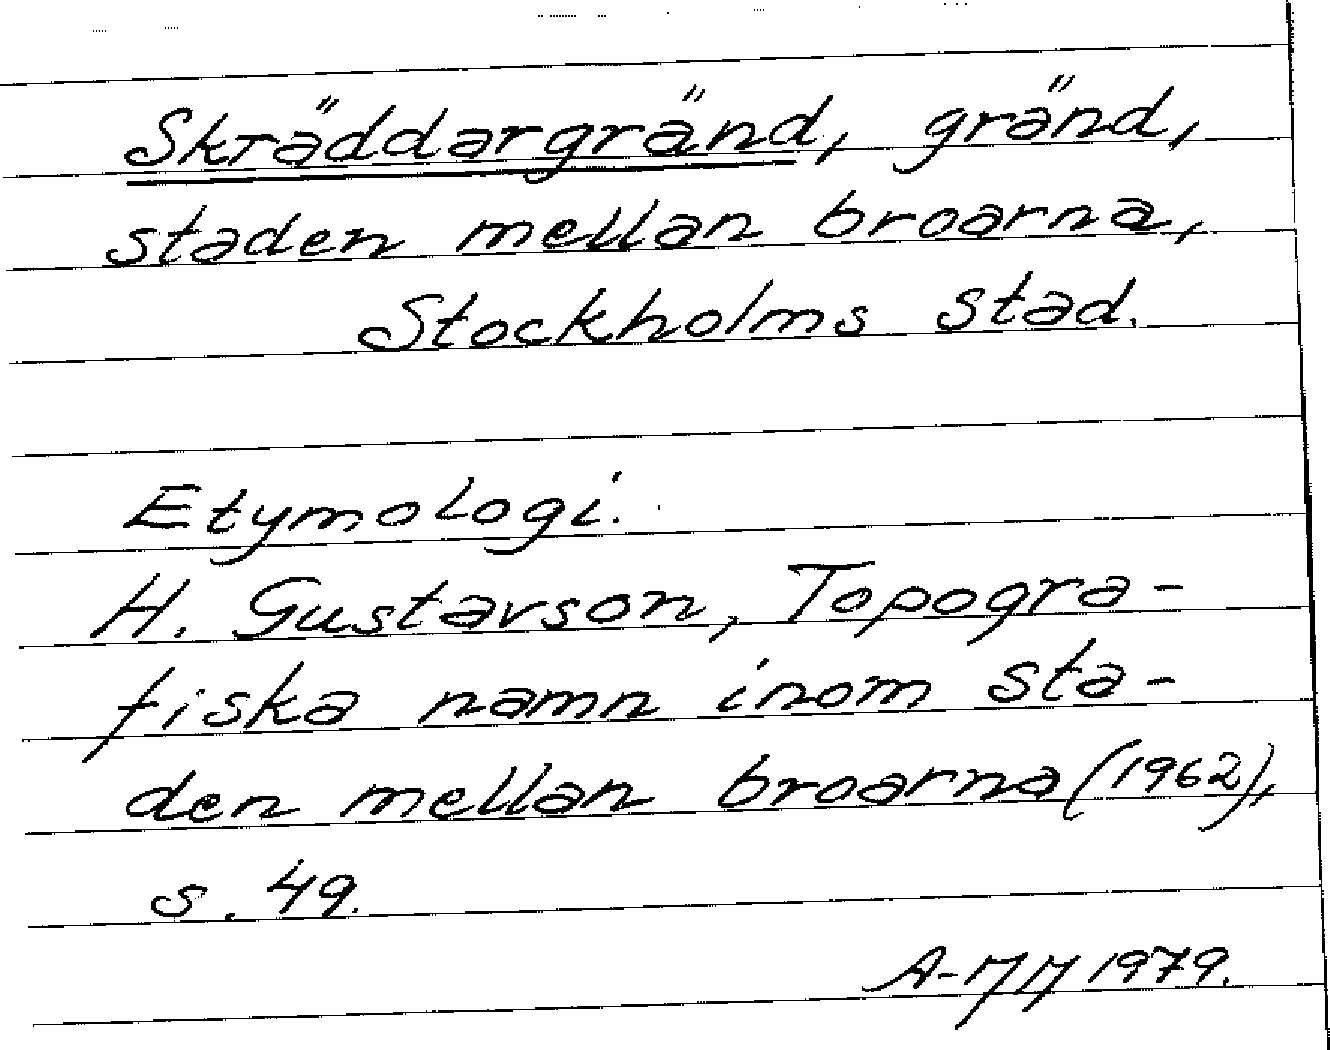 Skräddargränd, gränd,
staden mellan broarna,
Stockholms stad.
Etymologi.
H. Gustavson, Topogra-
fiska namn inom sta-
den mellan broarna (1962),
s. 49.
1979.